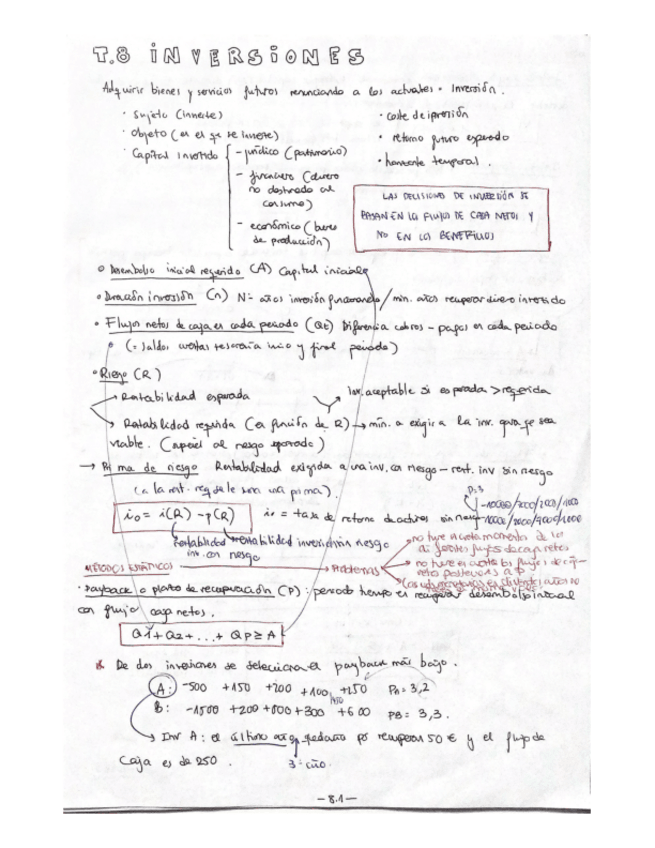 T.8 INVERSIONES
Adquirir bienes y servicios futuros renunciando a los actuales = Inversión.
· Sujeto (invierte)
· coste de
· Objeto (en el qe se invierte)
· retorno futuro esperado
· Capital Invertido
- jurídico (patrimonio)
· horizonte temporal.
- financiero (dinero
no destinado al
consumo)
- económico (bienes
de producción)
LAS DECISIONES DE INVERSIÓN SE
BASAN EN LOS FLUJOS DE CAJA NETOS Y
NO EN LOS BENEFICIOS
Desembolso inicial requerido (A) Capital inicial
· Duración inversión (n) Nº años inversión funcionando / min. años recuperar dinero invertido
· Flujos netos de caja en cada periodo (Qt) Diferencia cobros - pagos en cada periodo
(= saldos cuentas tesorería inicio y final periodo)
· Riesgo (R)
→ Rentabilidad esperada
Inv. aceptable si esperada > requerida
→ Rentabilidad requerida (en función de R) → mín. a exigir a la inv. para qe sea
viable. (al riesgo)
→ Prima de riesgo Rentabilidad exigida a una inv. con riesgo - rent. inv sin riesgo
(a la rent. req. se le suma una prima).
P=3
-10000/2000/2000/
io = i(R) - p(R)
io = tasa de retorno de activos sin riesgo
Rentabilidad
inv. con riesgo
rentabilidad inversión sin riesgo
MÉTODOS ESTÁTICOS → PROBLEMAS
→ no tiene en cuenta momento de los
flujos de caja netos
→ no tiene en cuenta los flujos de caja
netos posteriores a P
· Payback o plazo de recuperación (P): periodo tiempo en recuperar desembolso inicial
con flujo caja netos.
Q1 + Q2 + ... + QP ≥ A
* De dos inversiones se seleccionará el payback más bajo.
A: -500 +150 +200 +100 +250 PA = 3,2
B: -1500 +200 +800 +300 +600 PB = 3,3.
→ Inv A: el último año quedarán por recuperar 50 € y el flujo de
Caja es de 250.
3º año.
- 8.1 -